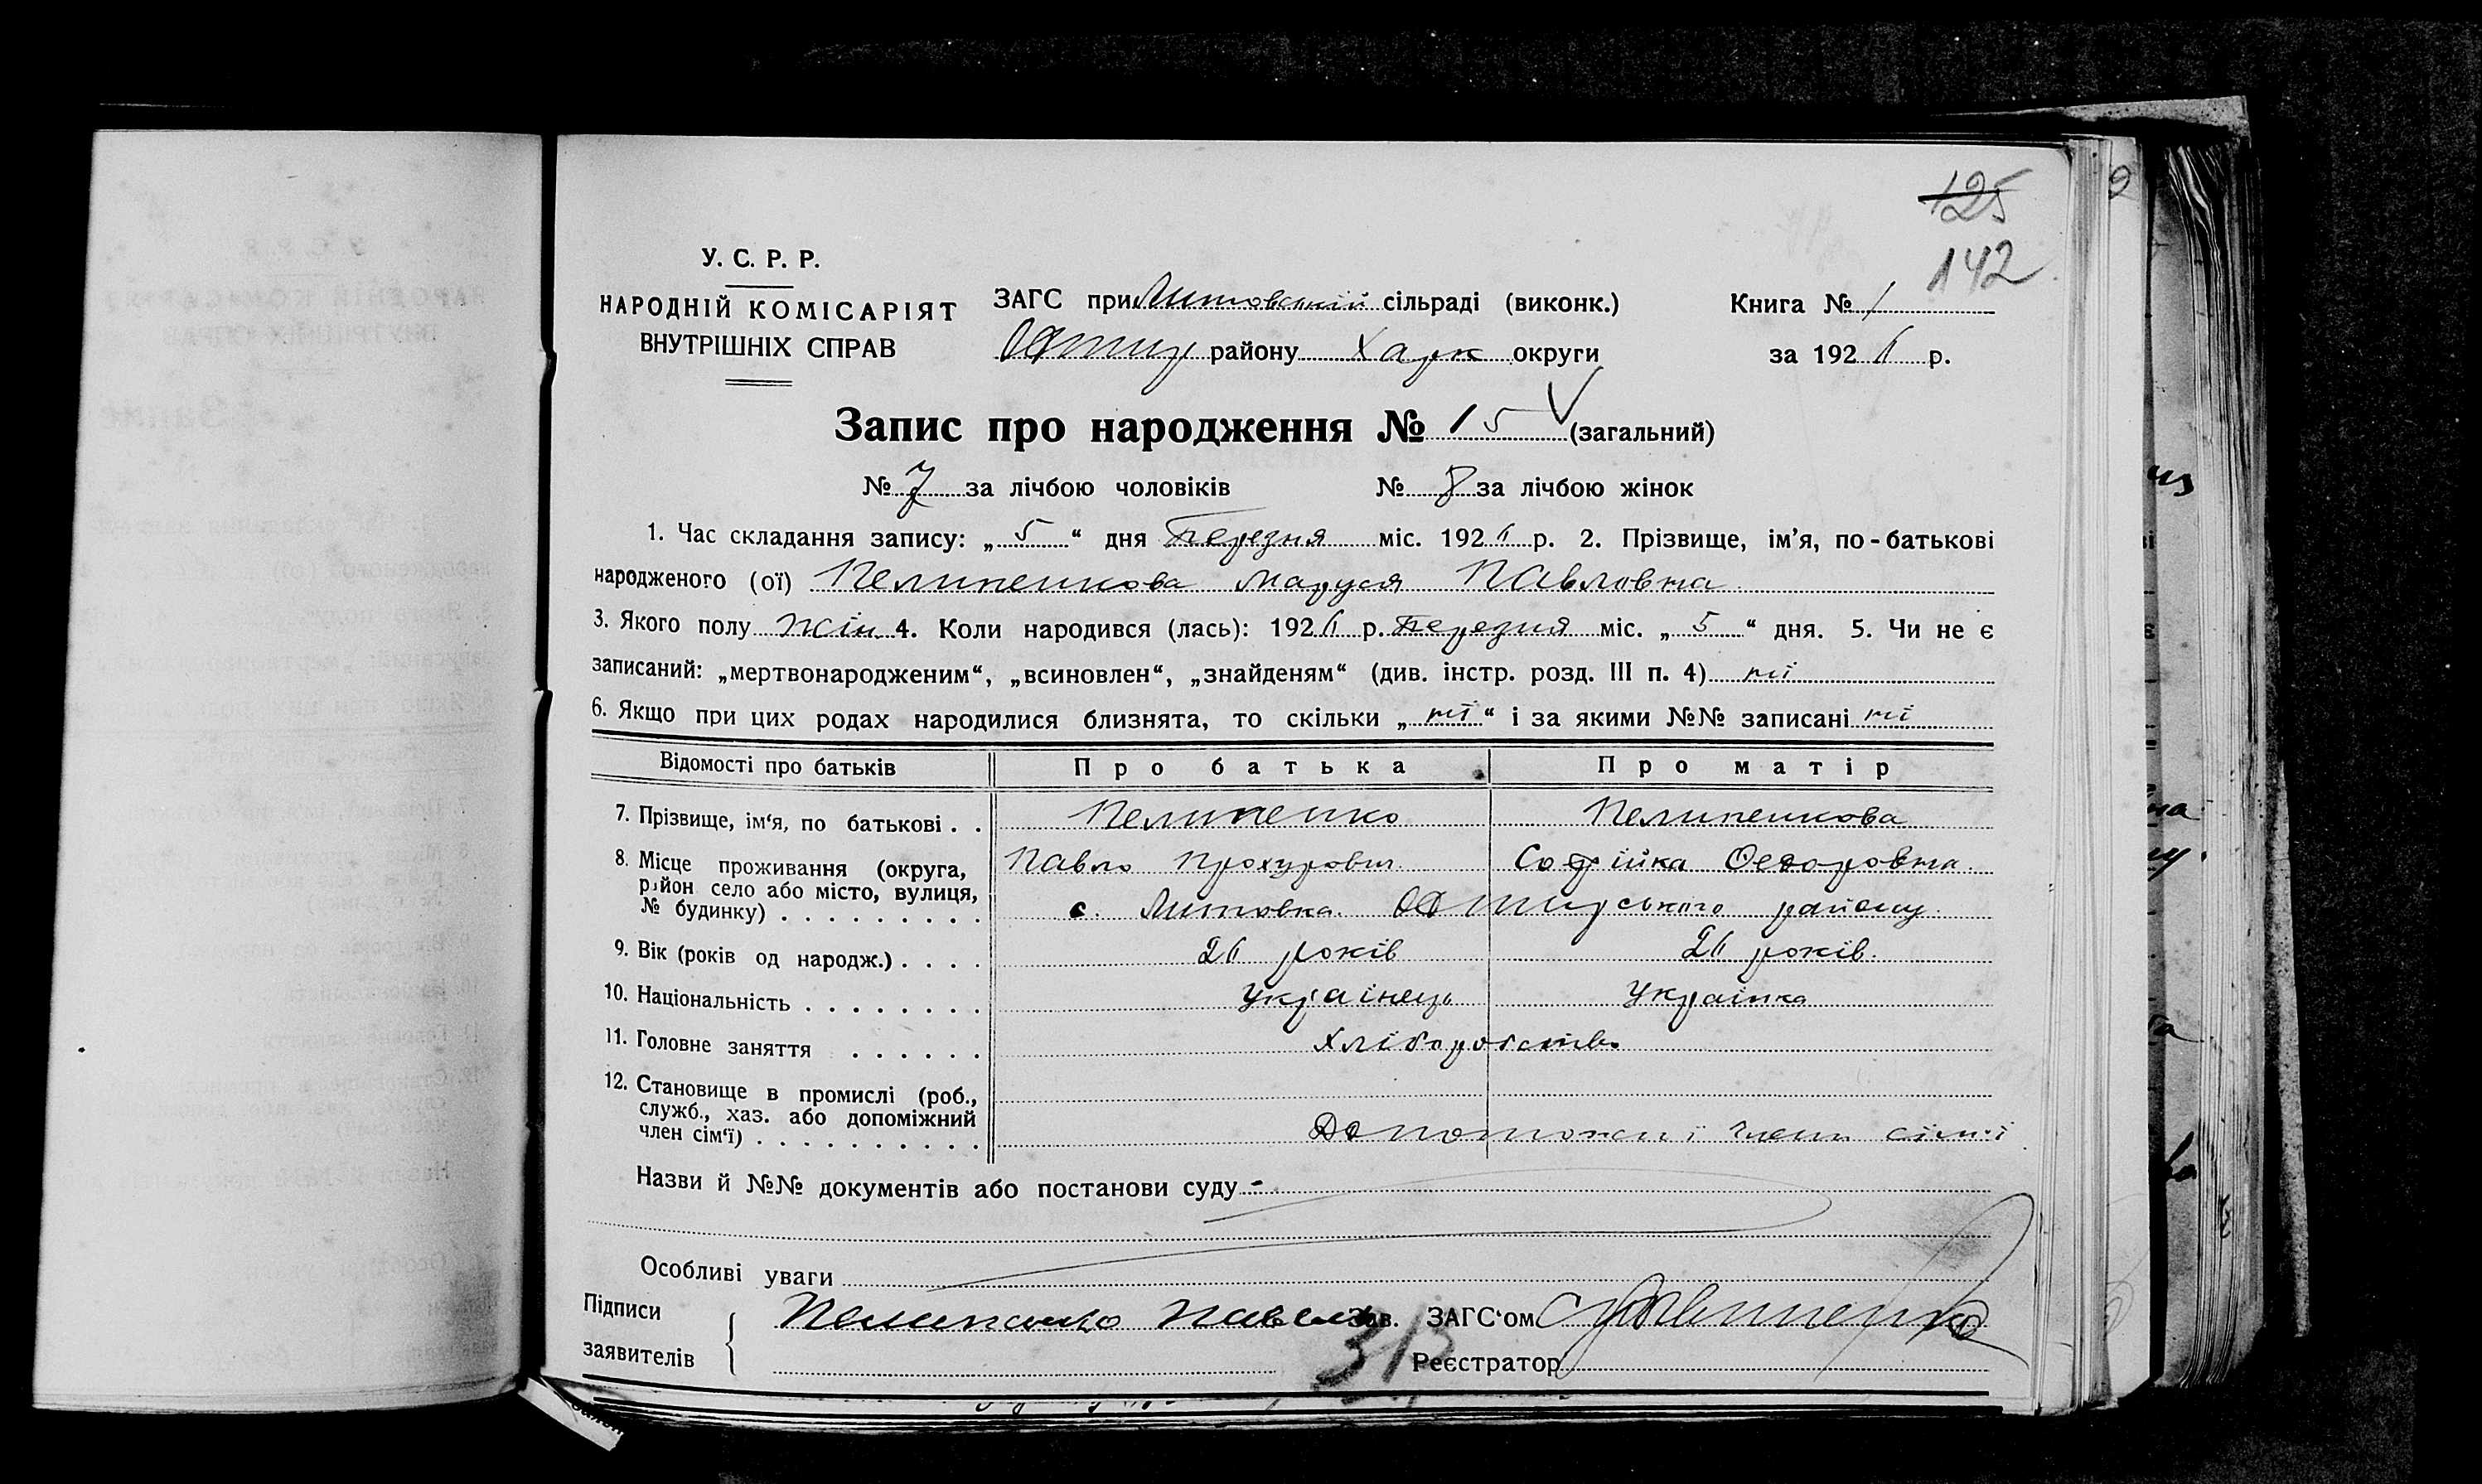 125
142
У. С. Р. Р.
НАРОДНІЙ КОМІСАРІЯТ
ВНУТРІШНІХ СПРАВ
ЗАГС при Литовській сільраді (виконк.)
району Харк округи
Книга № 1
за 1926 р.
Запис про народження № 15 (загальний)
№ 7 за лічбою чоловіків № 8 за лічбою жінок
1. Час складання запису: „ 5 “ дня Березня міс. 1926 р. 2. Прізвище, ім’я, по-батькові
народженого (ої) Пелипенкова Маруся Павловна
3. Якого полу жін 4. Коли народився (лась): 1926 р. Березня міс. „ 5 “ дня. 5. Чи не є
записаний: „мертвонародженим“, „всиновлен“, „знайденям“ (див. інстр. розд. III п. 4) ні
6. Якщо при цих родах народилися близнята, то скільки „ ні “ і за якими №№ записані ні
Відомості про батьків Про батька Про матір
7. Прізвище, ім‘я, по батькові . . Пелипенко Пелипенкова
Павло Прохурович Софійка Федоровна
8. Місце проживання (округа,
район село або місто, вулиця,
№ будинку) . . . . . . . . . с. Литовка району
9. Вік (років од народж.) . . . . 26 років 26 років.
10. Національність . . . . . . . . Українець Українка
11. Головне заняття . . . . . . Хліборобство
12. Становище в промислі (роб.,
служб., хаз. або допоміжний
член сім‘ї) . . . . . . . . . . Допоможні члени сім'ї
Назви й №№ документів або постанови суду -
Особливі уваги
Підписи
заявителів
Пелипенко Павело
Зав. ЗАГС‘ом
313
Реєстратор